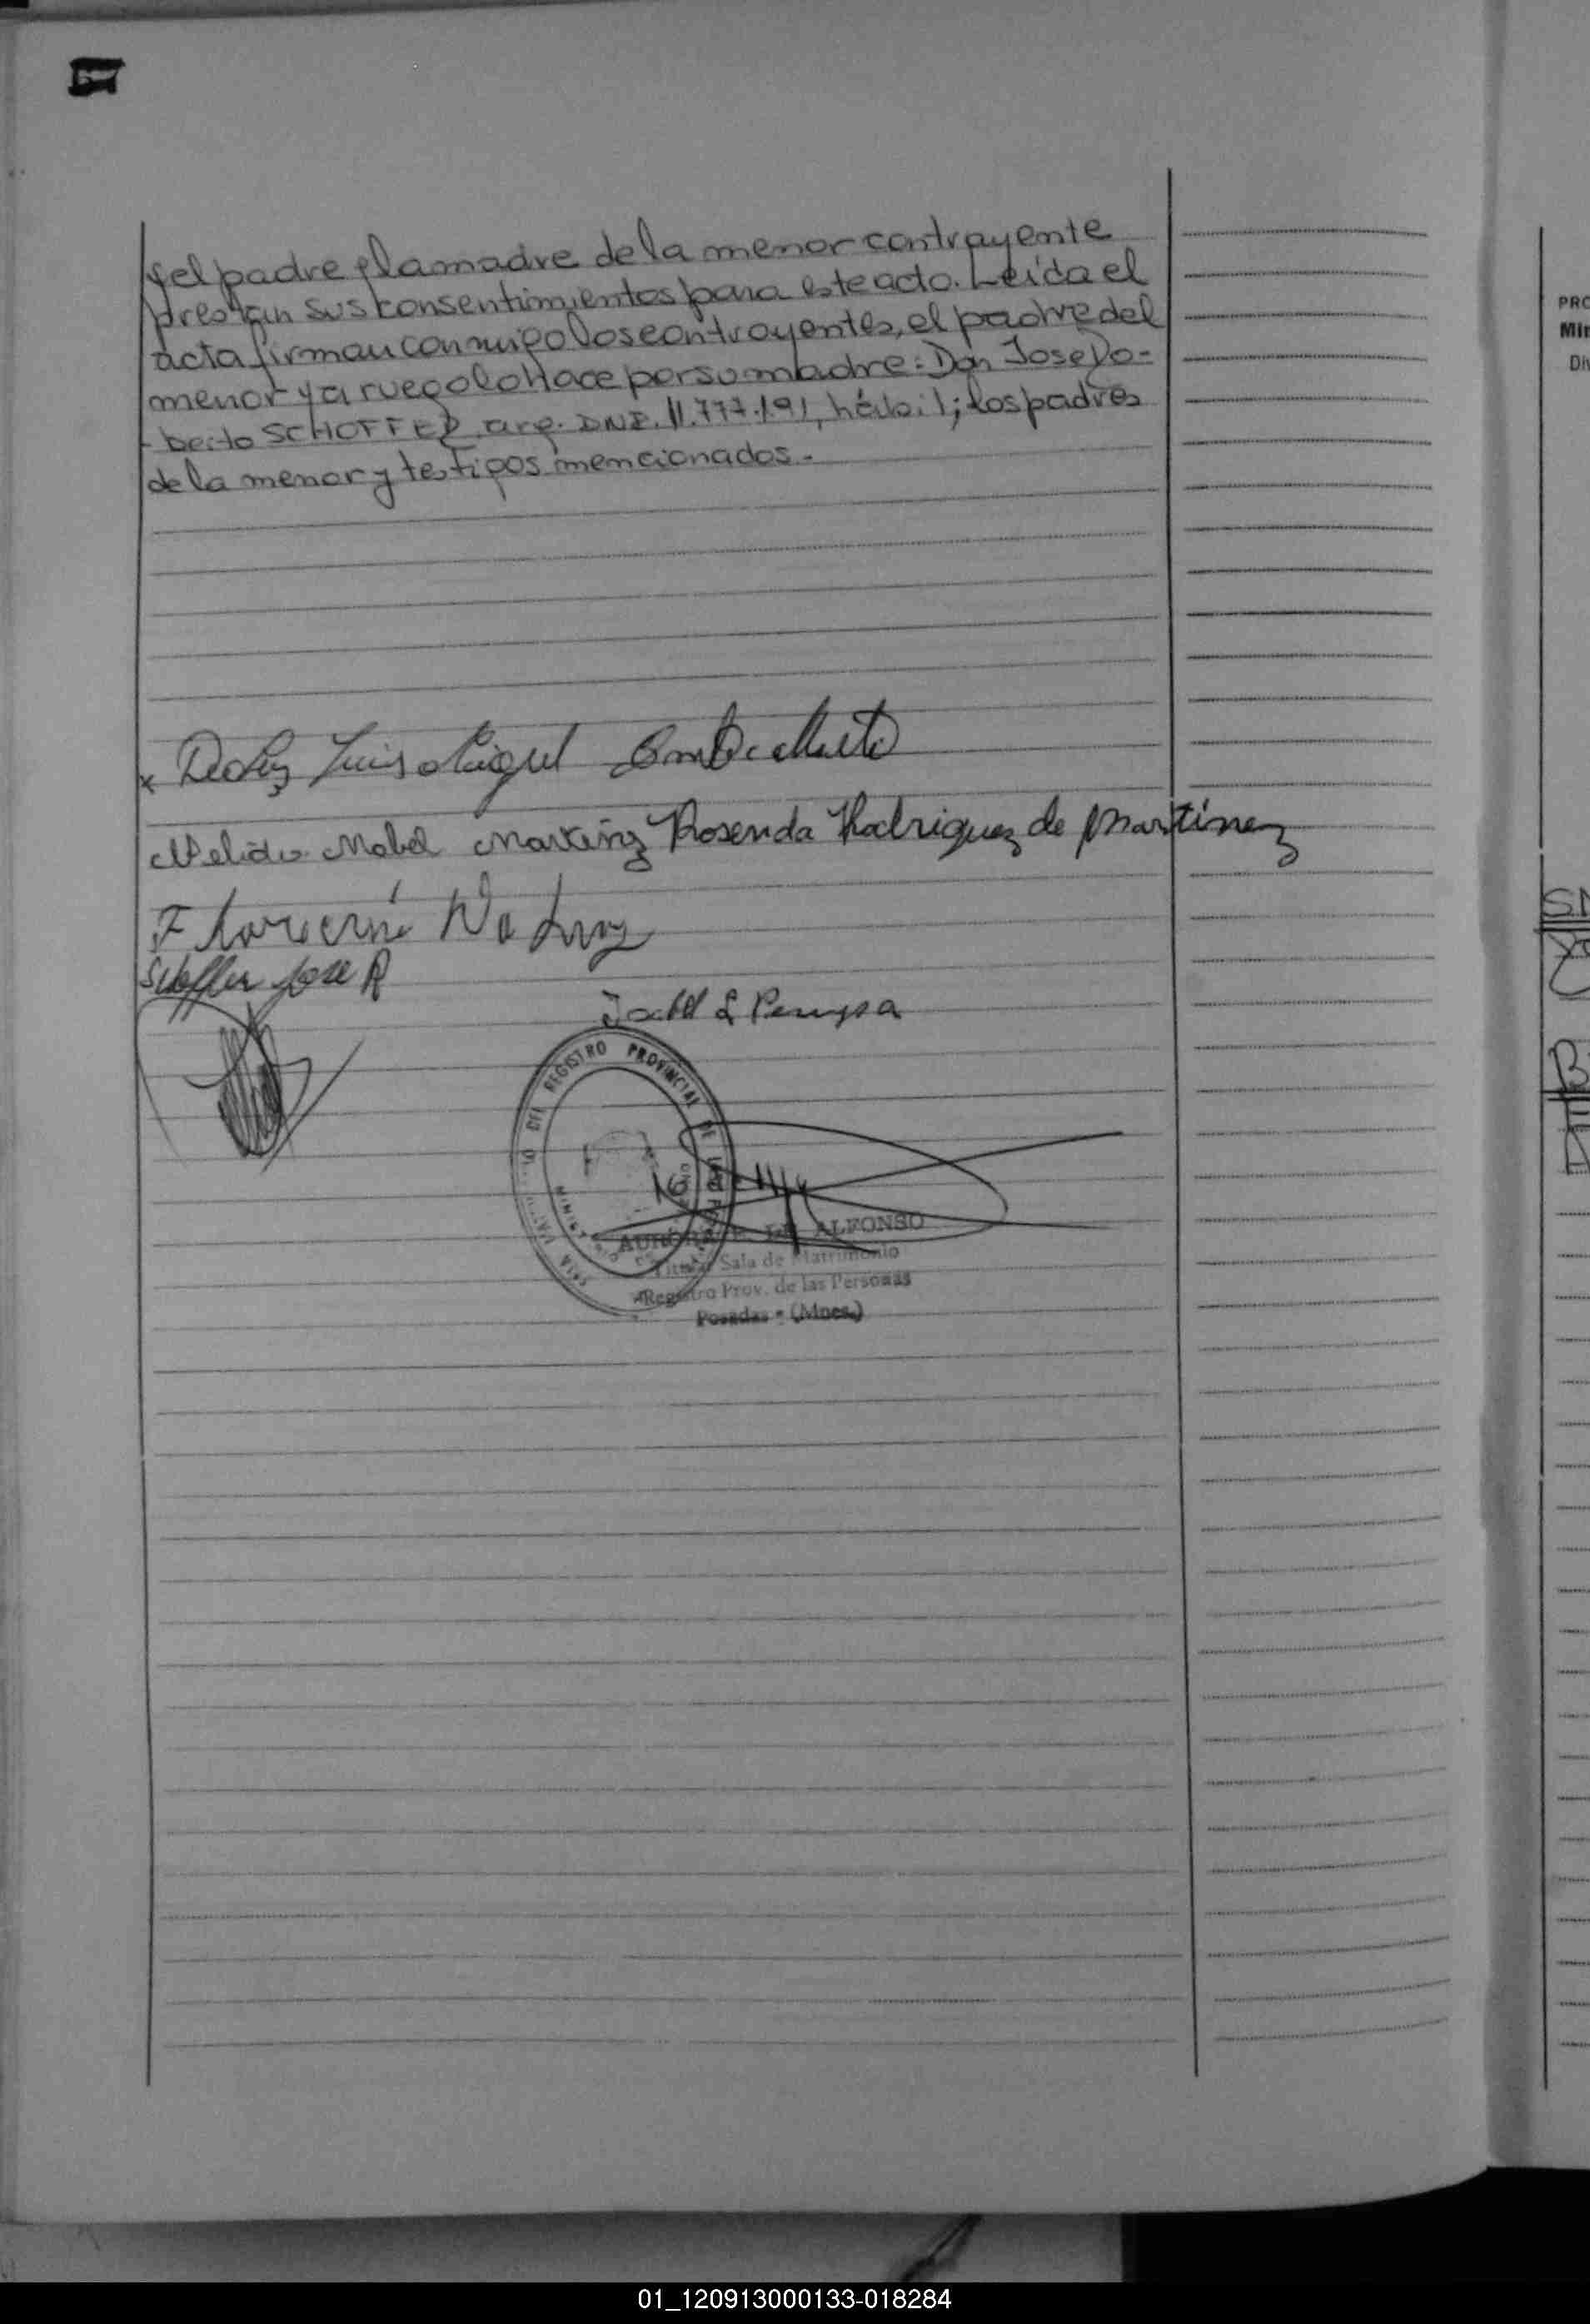 y el padre y la madre de la menor contrayente
prestan sus consentimientos para este acto. Leída el
acta firman conmigo los contrayentes, el padre del
menor y a ruego lo hace por su madre: Don Jose Ro-
berto SCHOFFER, arg. DNI. 11.777.191, hábil; los padres
de la menor y testigos mencionados.-
x Luis Miguel
Nelida Mabel Martinez Rosenda Rodriguez de Martinez
Schoffer Jose R
REGISTRO PROVINCIAL DE LAS
AURORA ALFONSO
Titular Sala de Matrimonio
Registro Prov. de las Personas
Posadas - (Mnes.)
PRO
01_120913000133-018284